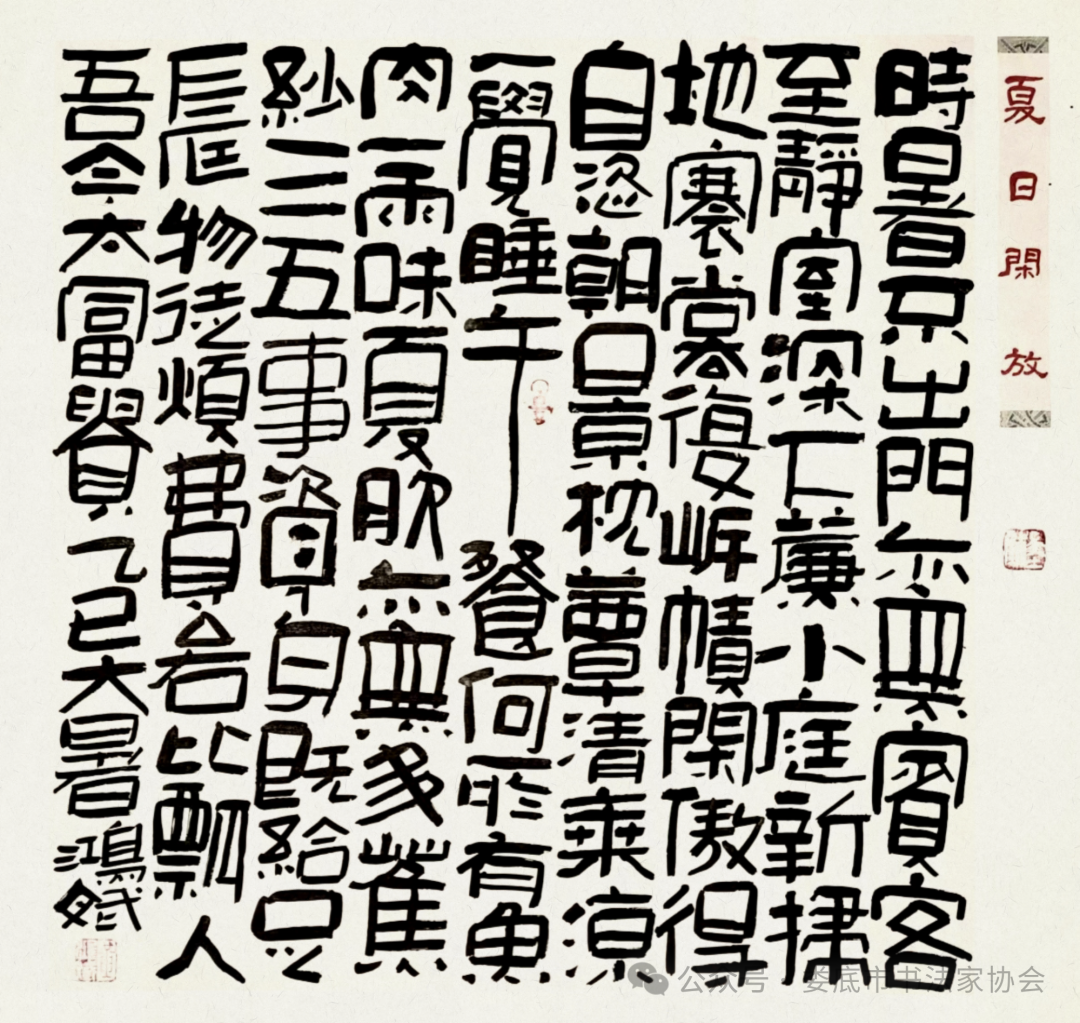 夏日閑放
時暑不出門亦無賓客
至靜室深下簾小庭新掃
地褰裳復岸幘閑傲得
自恣朝景枕簟清乘涼
一覺睡午餐何所有魚
肉一兩味夏服亦無多蕉
紗三五事資身既給足
長物徒煩費若比瓢人
吾今太富貴乙巳大暑鴻斌
公众号·娄底市书法家协会